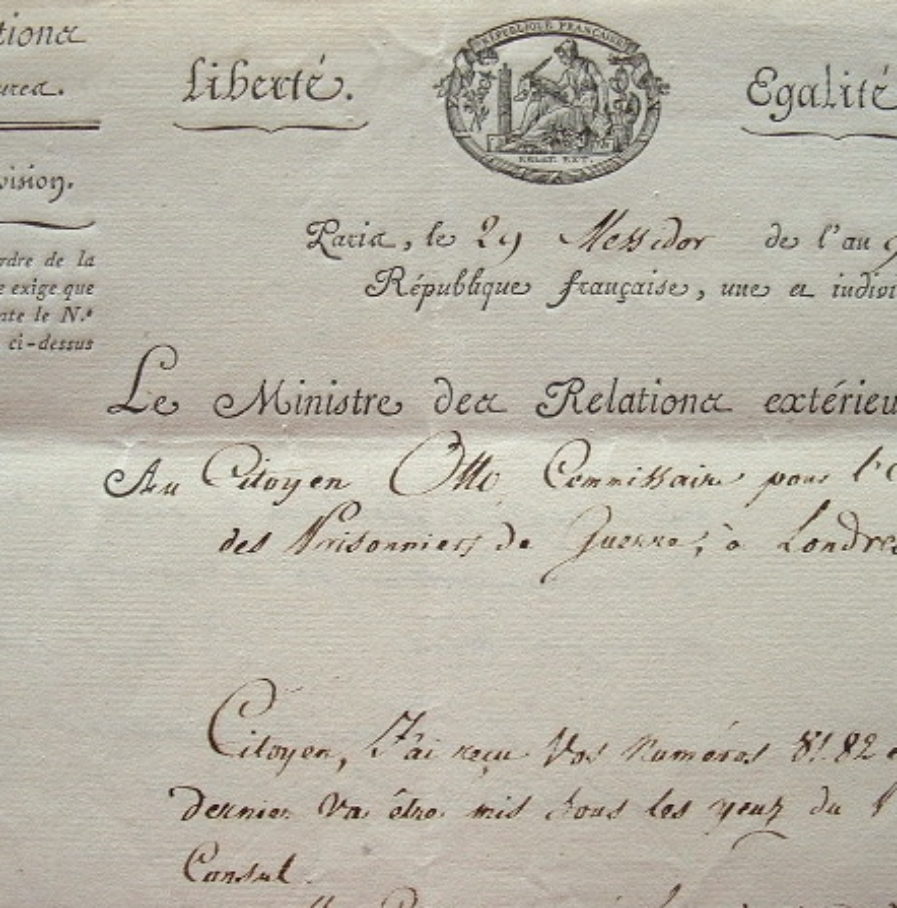 tions
ures.
vision.
rdre de la
e exige que
nte le N.º
ci-dessus
Liberté.
RÉPUBLIQUE FRANÇAISE
RELAT. EXT.
Egalité
Paris, le 29 Messidor de l'an 9
République française, une et indivi
Le Ministre des Relations extérieu
Au Citoyen Otto, Commissaire pour l'
des Prisonniers de Guerre, à Londres
Citoyen, J'ai reçu Vos Numéros 81. 82 e
dernier va être mis sous les yeux du
Consul.